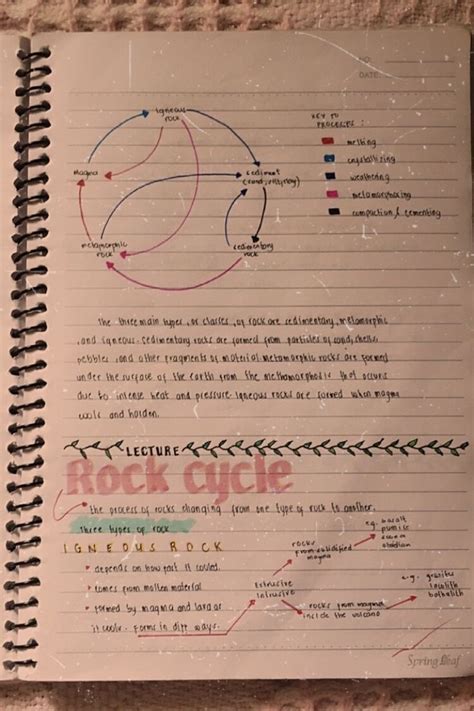 NO:
DATE:
igneous
rock
KEY TO
PROCESSES :
melting
crystallizing
weathering
metamorphosing
compaction & cementing
magma
sediment
metamorphic
rock
sedimentary
rock
The three main types, or classes, of rock are sedimentary, metamorphic
, and igneous. sedimentary rocks are formed from particles of sand, shells,
pebbles, and other fragments of material. metamorphic rocks are formed
under the surface of the earth from the methamorphosis that occurs
due to intense heat and pressure. Igneous rocks are formed when magma
cools and harden.
LECTURE
Rock cycle
the process of rocks changing from one type of rock to another.
three types of rock
IGNEOUS ROCK
• depends on how part it cooled.
• comes from molten material
• formed by magma and lava as
it cools. forms in diff ways.
extrusive
intrusive
rocks
from solidified
magma
e.g. basalt
pumice
obsidian
rocks from magma
inside the volcano
e.g. granites
Spring Leaf